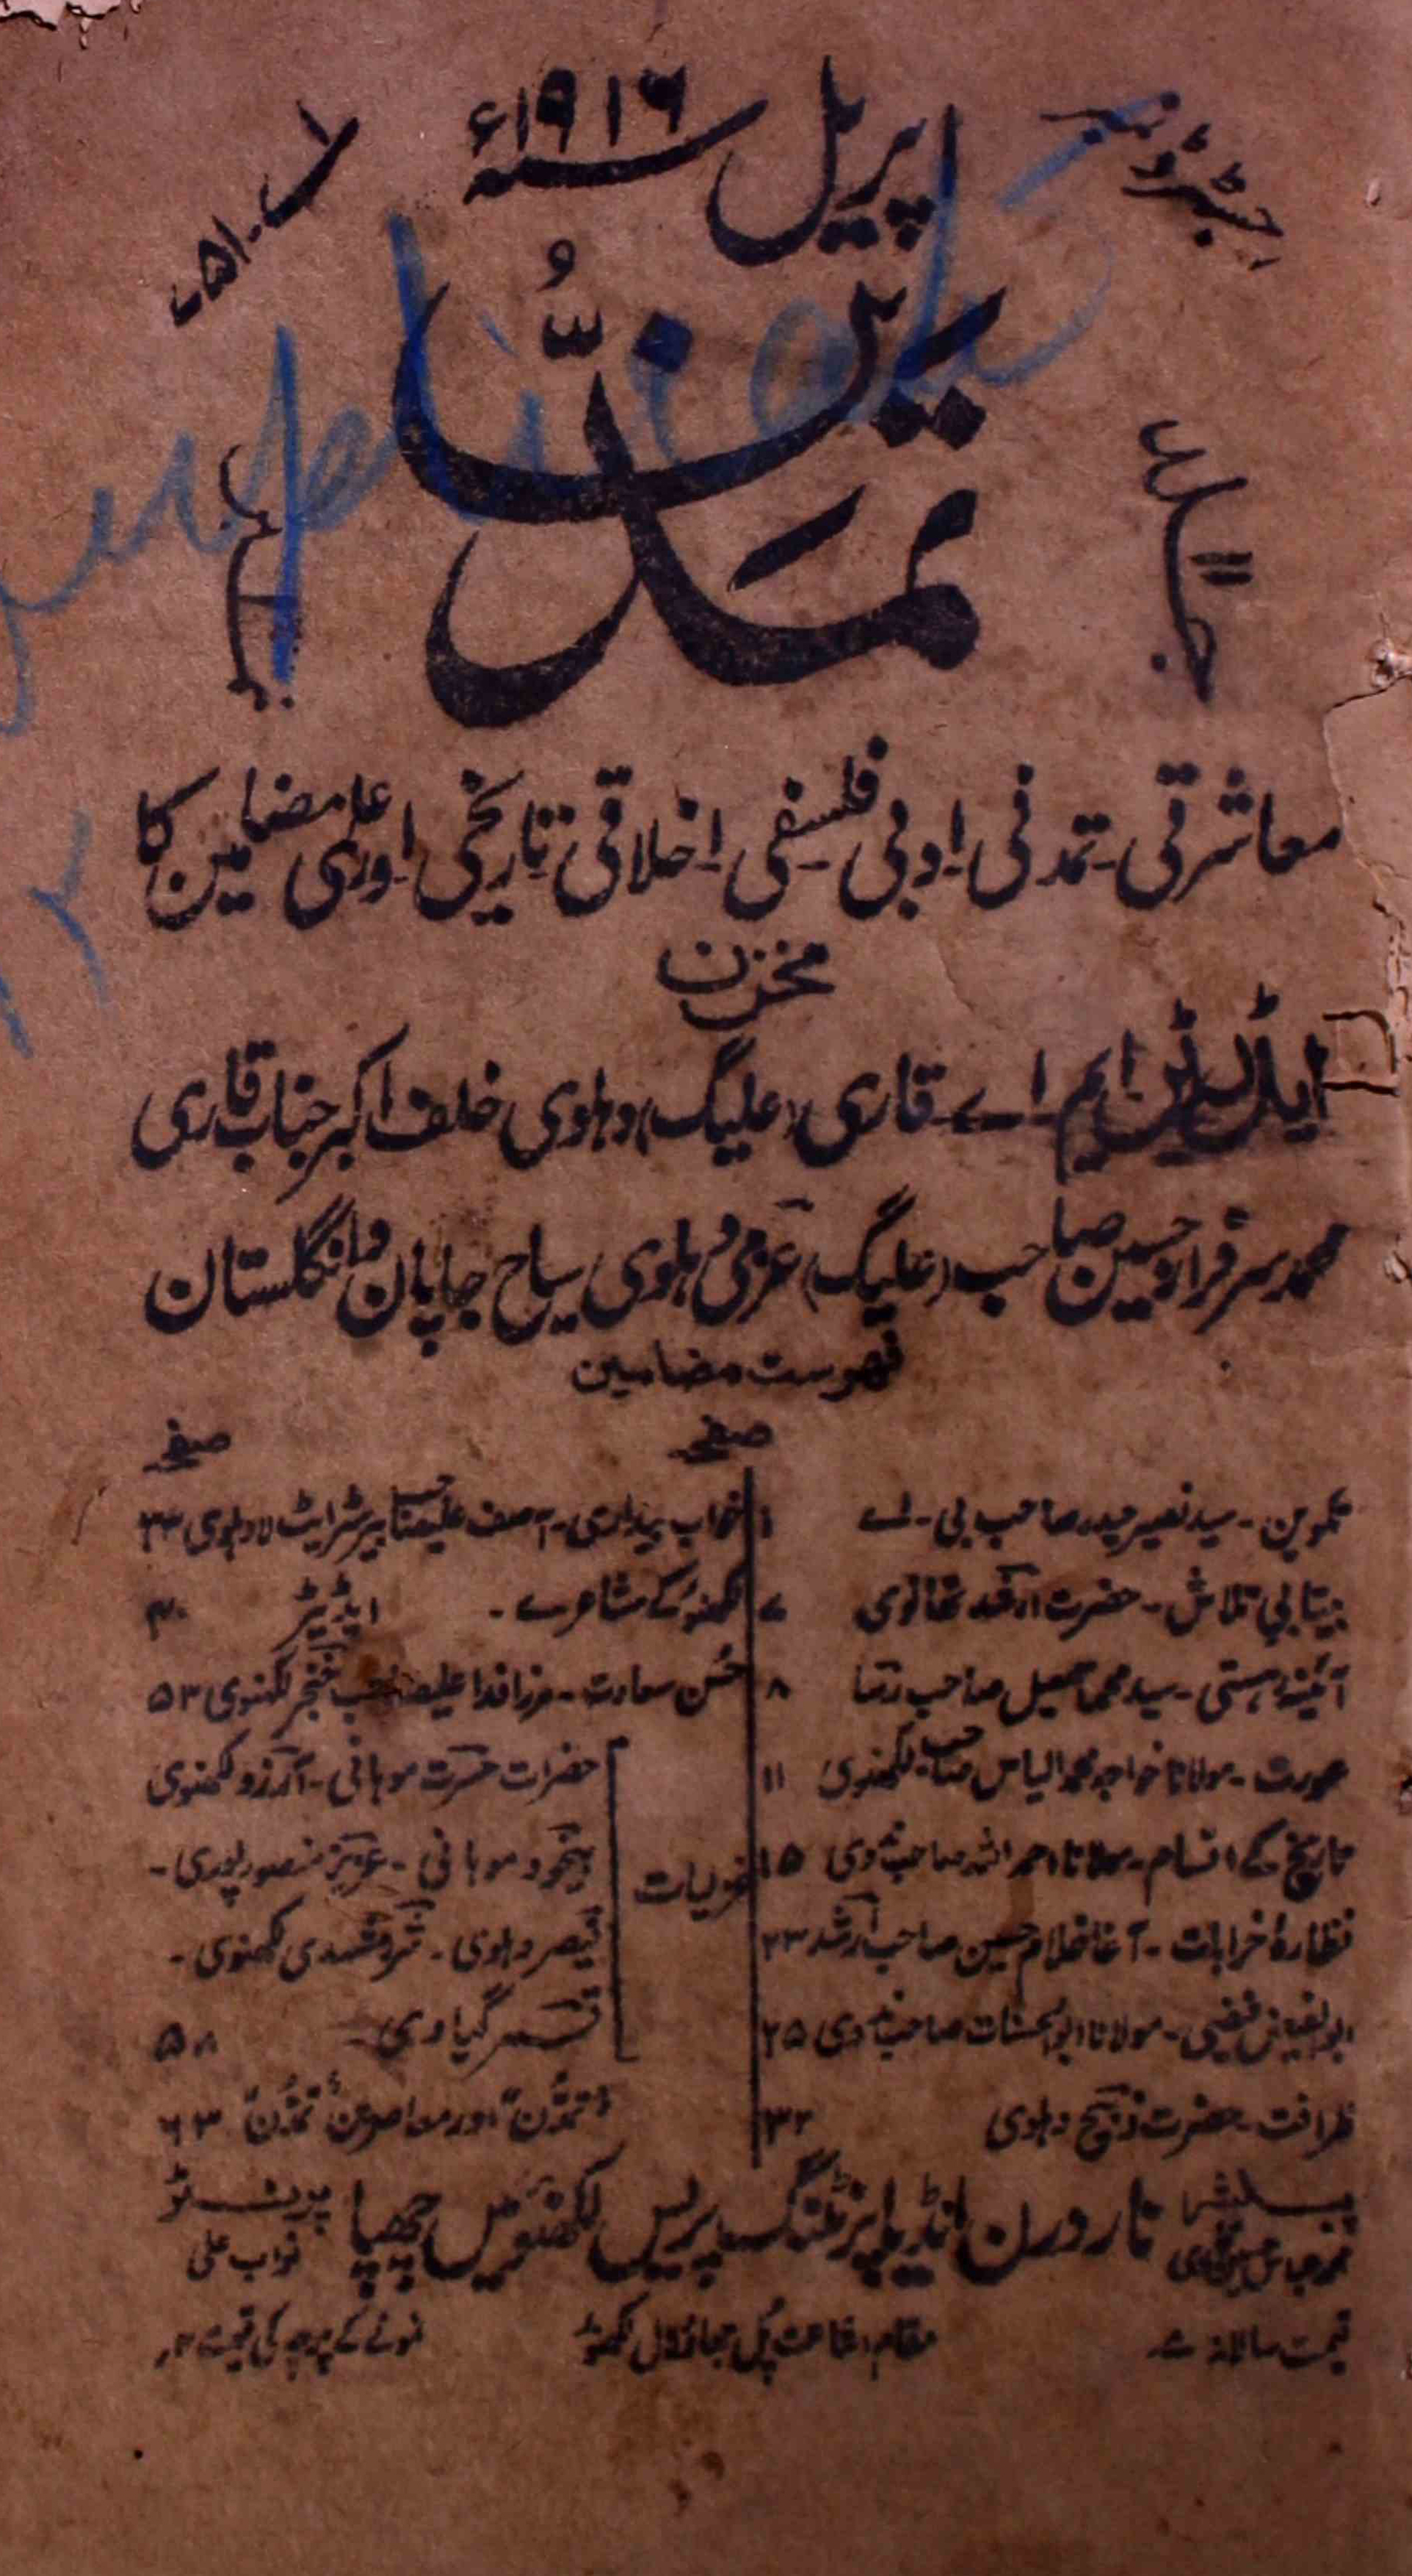 اپریل سنہ ۱۹۱۶ء
رجسٹرڈ نمبر
تمدّن
معاشرتی۔ تمدنی۔ ادبی فلسفی۔ اخلاقی تاریخی۔ اور علمی مضامین کا
مخزن
ایڈیٹر ایم۔ اے۔ قاری (علیگ) دہلوی خلف اکبر جناب قاری
محمد سرفراز حسین صاحب (علیگ) عزمی دہلوی سیاح جاپان و انگلستان
فہرست مضامین
صفحہ
صفحہ
سید نصیر حیدر صاحب بی۔ اے ۱
بیتابی تلاش۔ حضرت ارشد تھانوی ۷
آئینہ ہستی۔ سید محمد اسمعیل صاحب رسا ۸
عورت۔ مولانا خواجہ محمد الیاس صاحب لکھنوی ۱۱
تاریخ کے اقسام۔ مولانا احمد اللہ صاحب ندوی ۱۵
نظارۂ خرابات۔ آغا غلام حسین صاحب ارشد ۲۳
ابو الفیض فیضی۔ مولانا ابو الحسنات صاحب ندوی ۲۵
ظرافت۔ حضرت ذبیح دہلوی ۳۲
خواب بیداری۔ آصف علی صاحب بیرسٹر ایٹ لا دہلوی ۳۳
لکھنؤ کے مشاعرے۔ ایڈیٹر ۴۰
حسن سعادت۔ مرزا فدا علی صاحب خنجر لکھنوی ۵۳
غزلیات
حضرات حسرت موہانی۔ آرزو لکھنوی
بیخود موہانی۔ عزیز منصور پوری۔
قیصر دہلوی۔ لکھنوی۔
گیاوی۔ ۵۸
"تمدّن" اور معاصرین "تمدّن" ۶۳
پبلیشر
ناردرن انڈیا پرنٹنگ پریس لکھنؤ میں چھپا
پرنٹر
نواب علی
قیمت سالانہ
مقام اشاعت پُل جھاؤلال لکھنؤ
نمونے کے پرچہ کی قیمت ۴؍